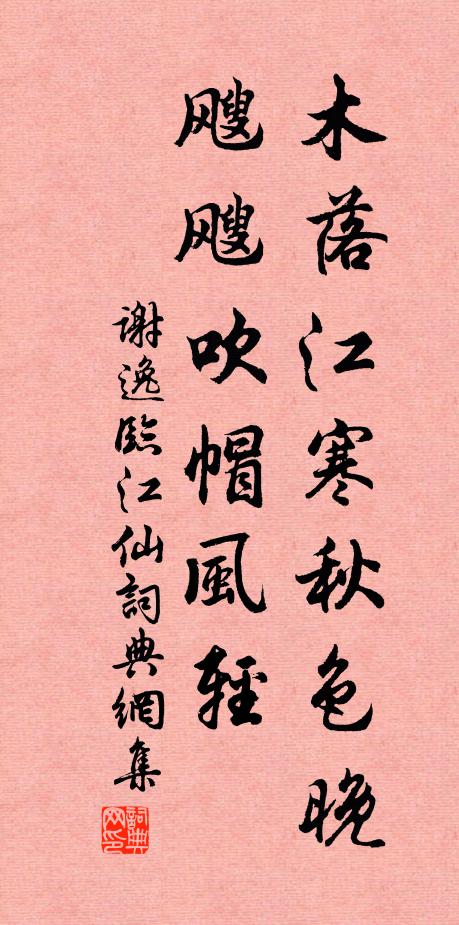 木落江寒秋色晚
飕飕吹帽風輕
謝逸臨江仙詞典網集
詞典网印